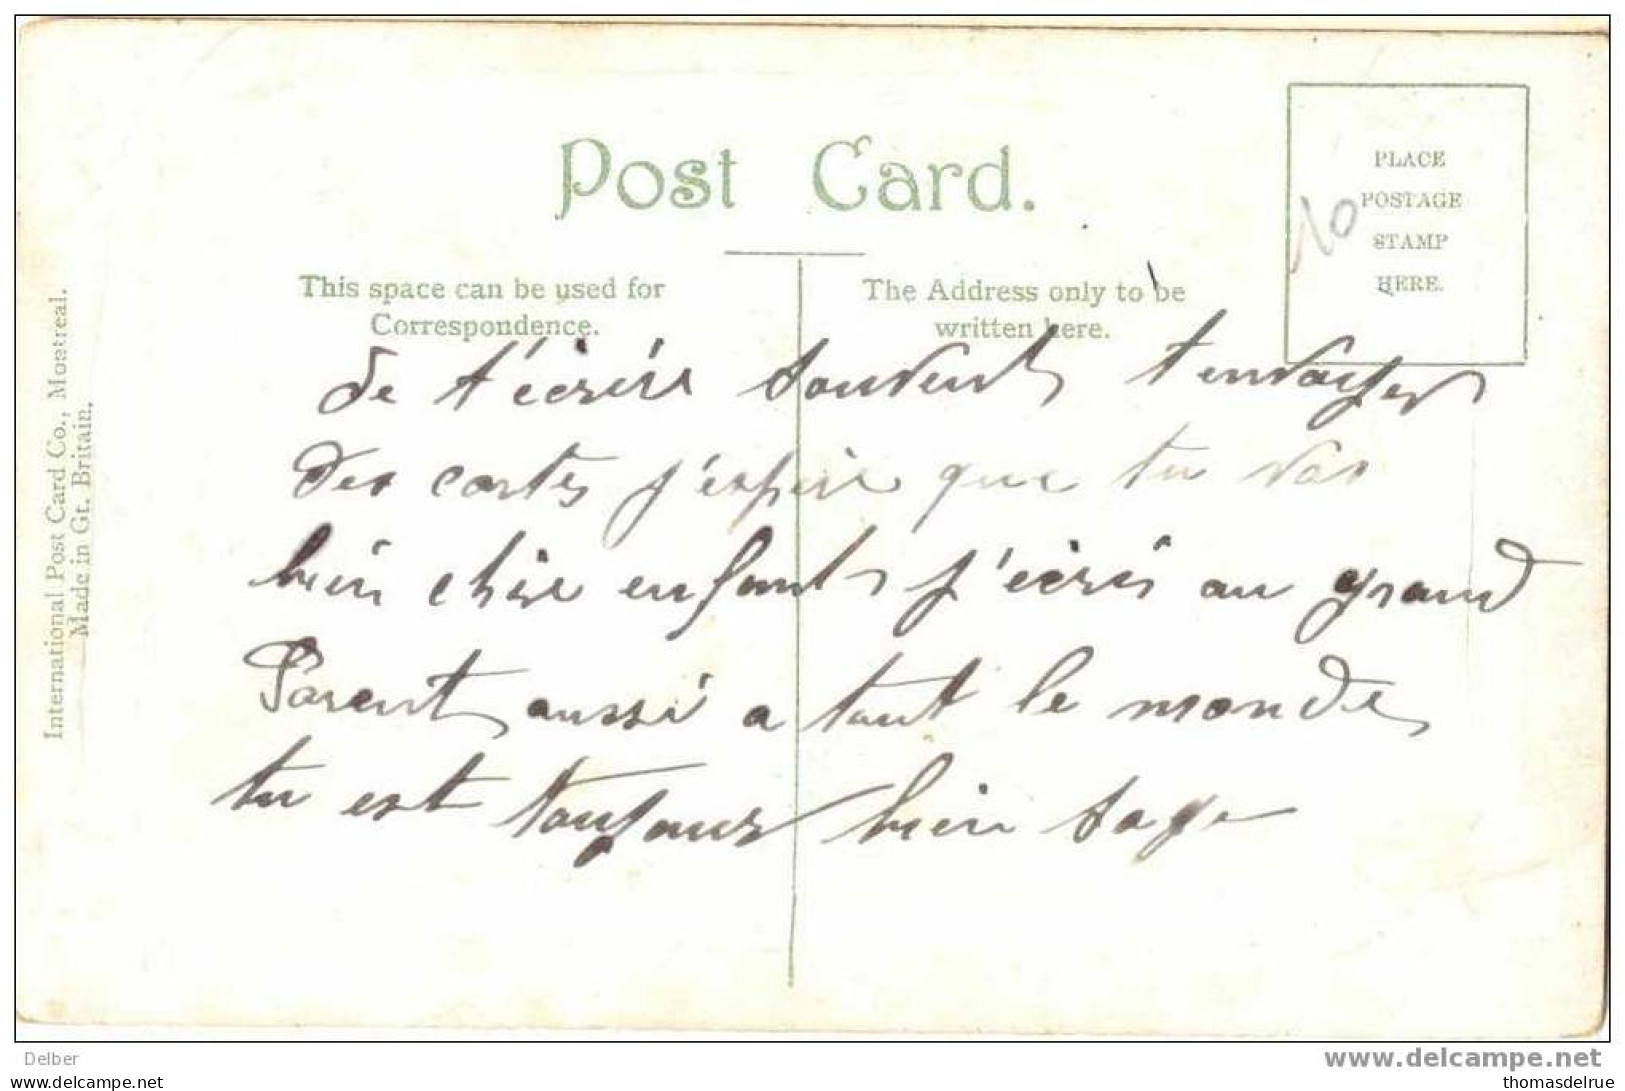 Post Card.
PLACE
POSTAGE
STAMP
HERE.
10
This space can be used for
Correspondence.
The Address only to be
written here.
International Post Card Co., Montreal.
Made in Gt. Britain.
de t'écrire souvent t envoyer
des cartes j'espère que tu vas
bien chère enfant j'écris au grand
Parent aussi a tout le monde
tu est toujours bien sage
Delber
www.delcampe.net
https://www.delcampe.net
thomasdelrue